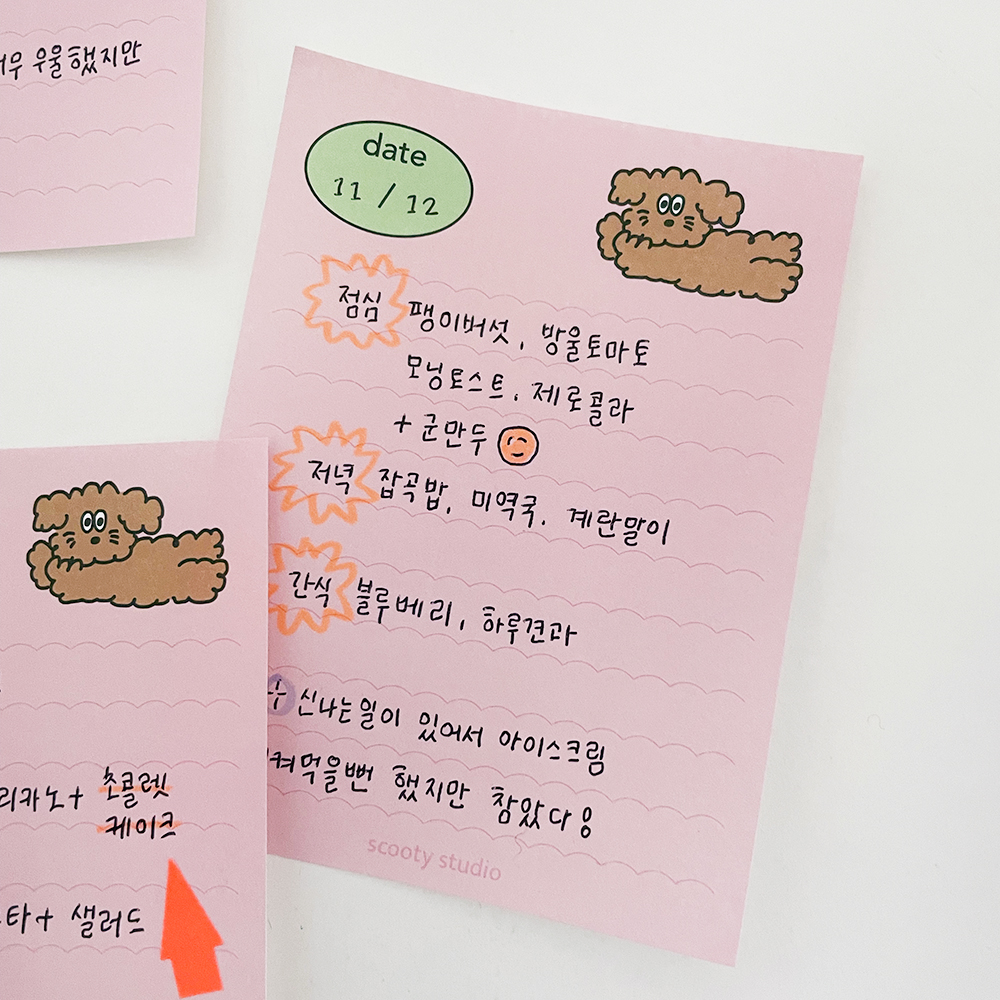 우울했지만
date
11 / 12
점심 팽이버섯, 방울토마토
모닝토스트, 제로콜라
+ 군만두
저녁 잡곡밥, 미역국, 계란말이
간식 블루베리, 하루견과
신나는일이 있어서 아이스크림
먹을뻔 했지만 참았다용
scooty studio
리카노+ 초콜렛
케이크
타+ 샐러드